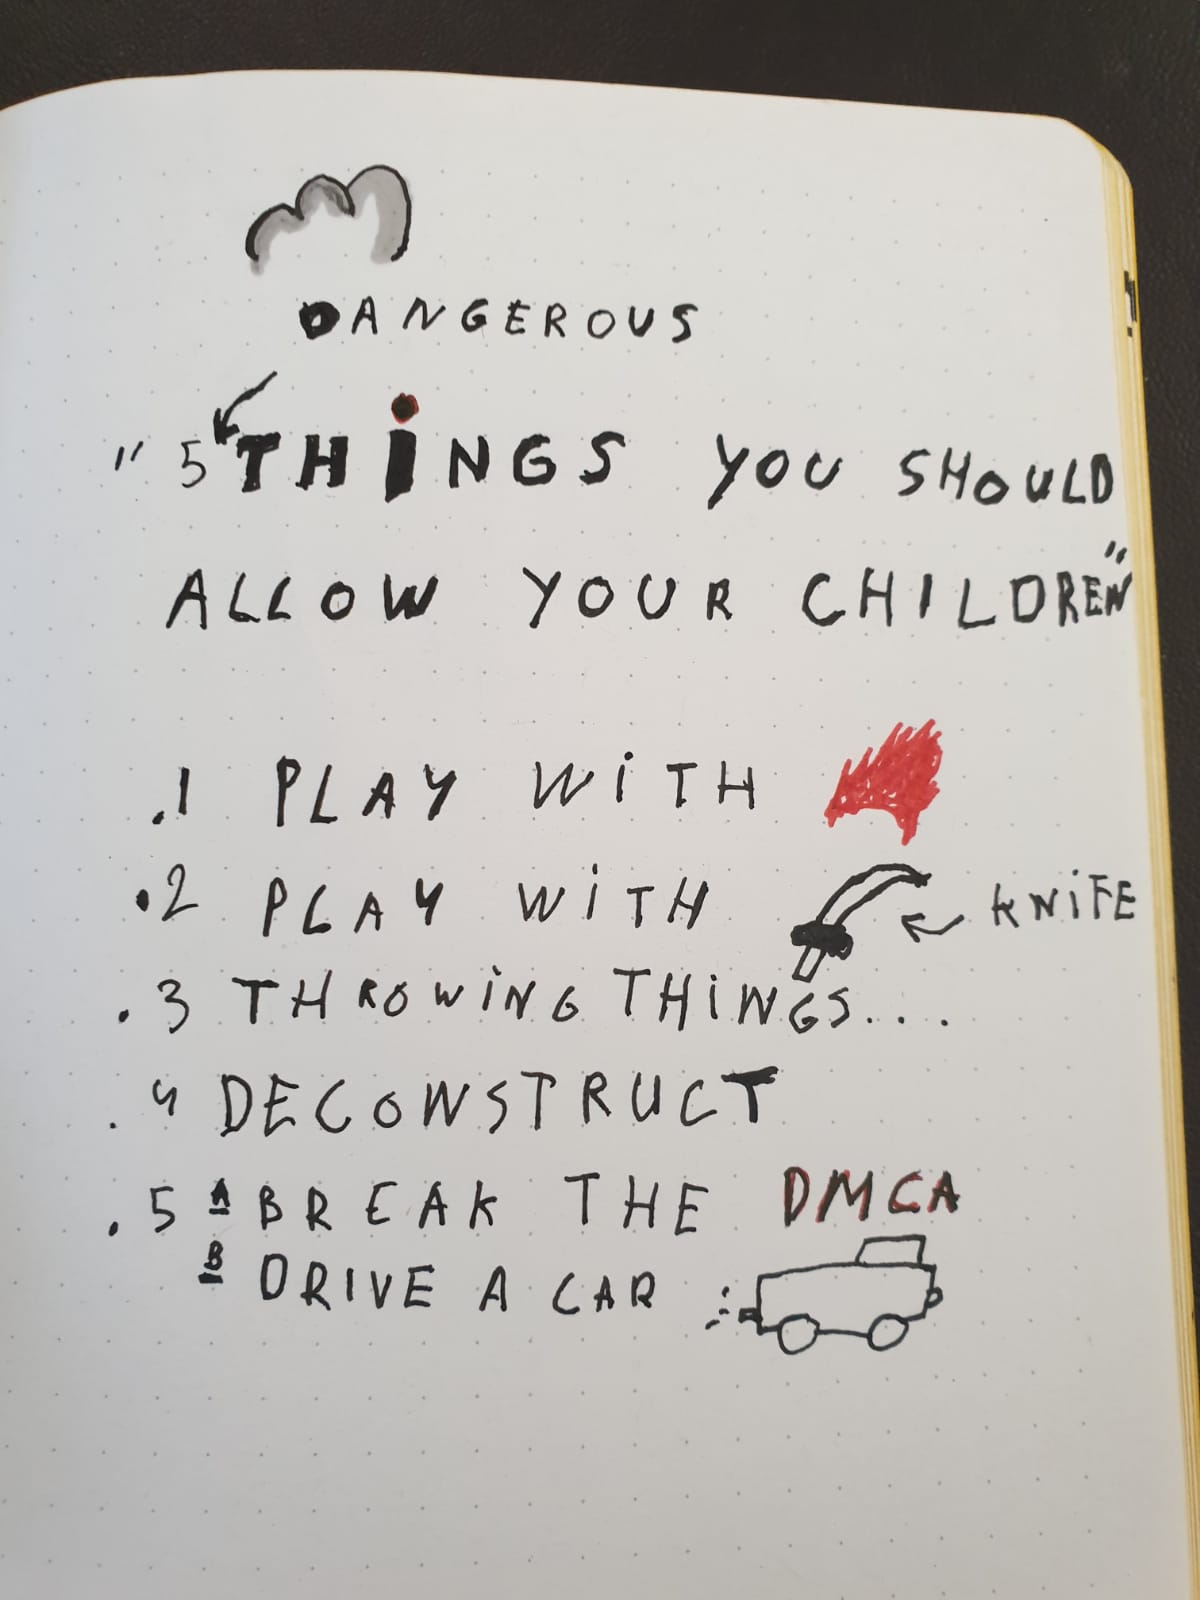 DANGEROUS
"5 THiNGS YOU SHOULD
ALLOW YOUR CHILDREN"
.1 PLAY WiTH
.2 PLAY WiTH
KNiFE
.3 THROWiNG THiNGS...
.4 DECONSTRUCT
.5 A BREAK THE DMCA
B DRIVE A CAR